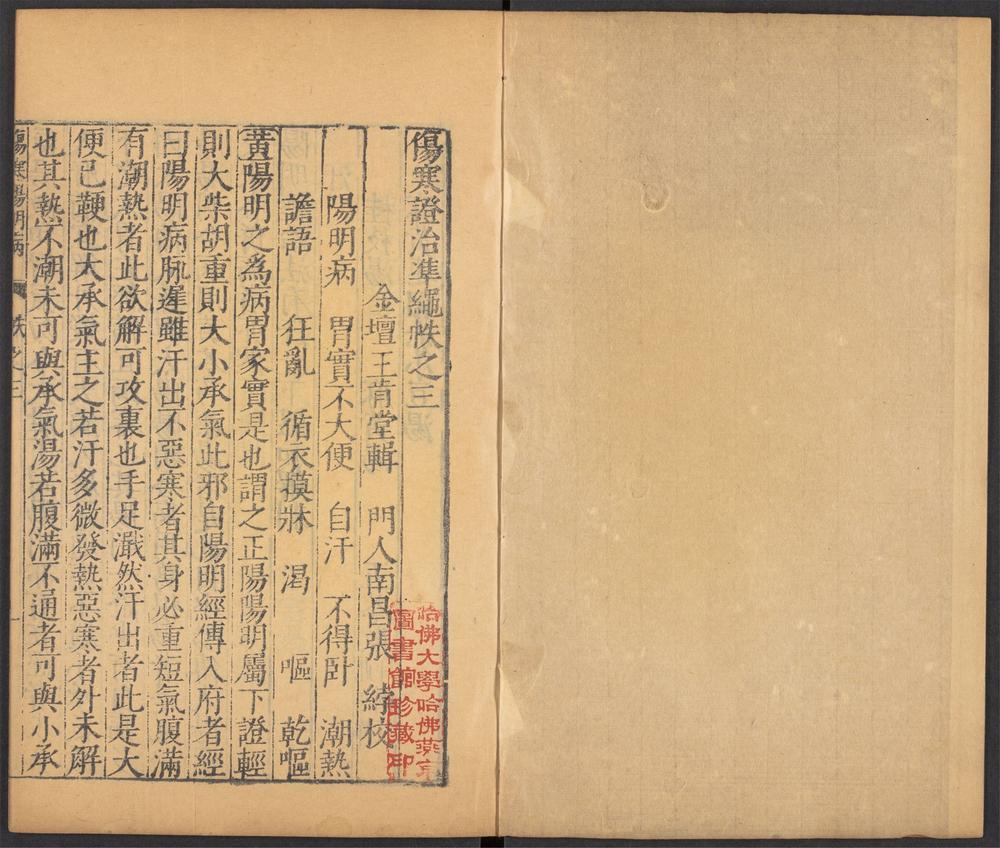 傷寒證治準繩帙之三
金壇王肯堂輯 門人南昌張 綍校
陽明病 胃實不大便 自汗 不得卧 潮熱
譫語 狂亂 循衣摸牀 渴 嘔 乾嘔
黃陽明之為病胃家實是也謂之正陽陽明屬下證輕
則大柴胡重則大小承氣此邪自陽明經傳入府者經
曰陽明病脈遲雖汗出不惡寒者其身必重短氣腹滿
有潮熱者此欲解可攻裏也手足濈然汗出者此是大
便已鞕也大承氣主之若汗多微發熱惡寒者外未解
也其熱不潮未可與承氣湯若腹滿不通者可與小承
傷寒陽明病 帙之三 一
哈佛大學哈佛燕京
圖書館珍藏印